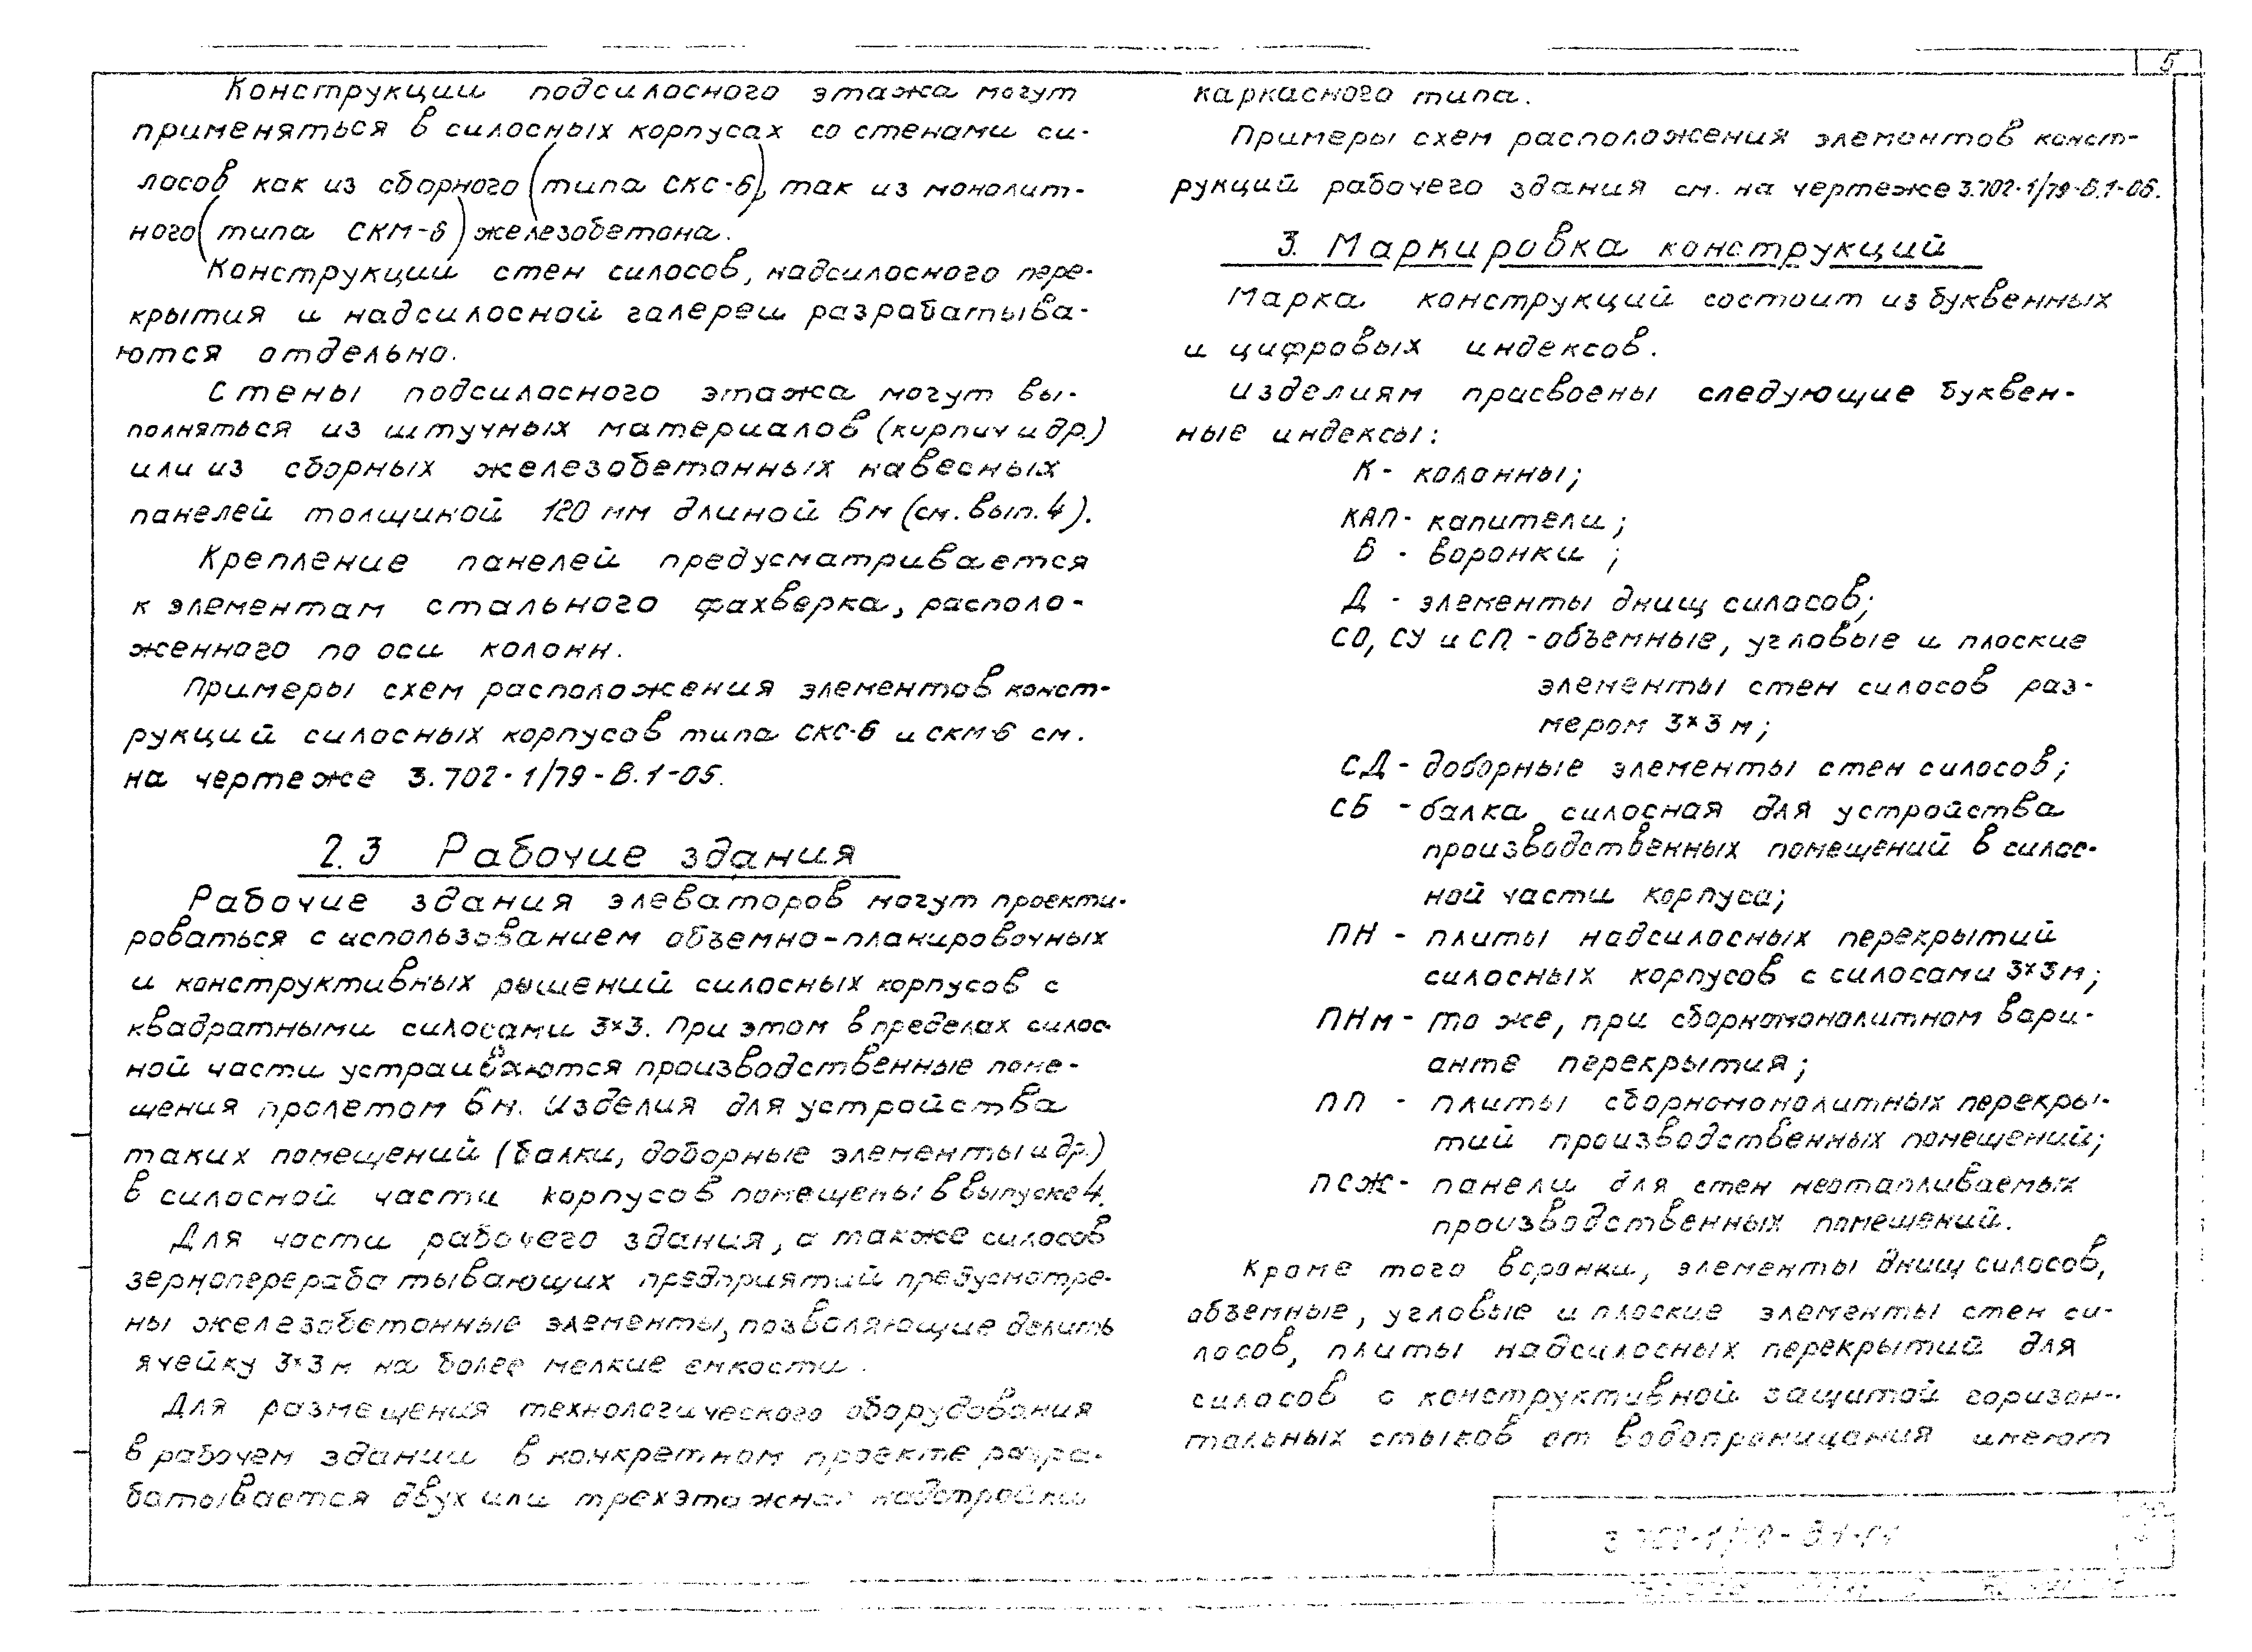 5
Конструкции подсилосного этажа могут
применяться в силосных корпусах со стенами си-
лосов как из сборного (типа СКС-6), так из монолит-
ного (типа СКМ-6) железобетона.
Конструкции стен силосов, надсилосного пере-
крытия и надсилосной галереи разрабатыва-
ются отдельно.
Стены подсилосного этажа могут вы-
полняться из штучных материалов (кирпич и др.)
или из сборных железобетонных навесных
панелей толщиной 120 мм длиной 6м (см. вып. 4).
Крепление панелей предусматривается
к элементам стального фахверка, располо-
женного по оси колонн.
Примеры схем расположения элементов конст-
рукций силосных корпусов типа СКС-6 и СКМ-6 см.
на чертеже 3.702-1/79-В.1-05.
2.3 Рабочие здания
Рабочие здания элеваторов могут проекти-
роваться с использованием объемно-планировочных
и конструктивных решений силосных корпусов с
квадратными силосами 3×3. При этом в пределах силос-
ной части устраиваются производственные поме-
щения пролетом 6м. Изделия для устройства
таких помещений (балки, доборные элементы и др.)
в силосной части корпусов помещены в выпуске 4.
Для части рабочего здания, а также силосов
зерноперерабатывающих предприятий предусмотре-
ны железобетонные элементы, позволяющие делить
ячейку 3×3м на более мелкие емкости.
Для размещения технологического оборудования
в рабочем здании в конкретном проекте разра-
батывается двух или трехэтажная надстройка
каркасного типа.
Примеры схем расположения элементов конст-
рукций рабочего здания см. на чертеже 3.702-1/79-В.1-06.
3. Маркировка конструкций
Марка конструкций состоит из буквенных
и цифровых индексов.
Изделиям присвоены следующие буквен-
ные индексы:
К - колонны;
КАП - капители;
В - воронки;
Д - элементы днищ силосов;
СО, СУ и СП - объемные, угловые и плоские
элементы стен силосов раз-
мером 3×3 м;
СД - доборные элементы стен силосов;
СБ - балка силосная для устройства
производственных помещений в силос-
ной части корпуса;
ПН - плиты надсилосных перекрытий
силосных корпусов с силосами 3×3м;
ПНм - то же, при сборномонолитном вари-
анте перекрытия;
ПП - плиты сборномонолитных перекры-
тий производственных помещений;
ПСЖ - панели для стен неотапливаемых
производственных помещений.
Кроме того воронки, элементы днищ силосов,
объемные, угловые и плоские элементы стен си-
лосов, плиты надсилосных перекрытий для
силосов с конструктивной защитой горизон-
тальных стыков от водопроницания имеют